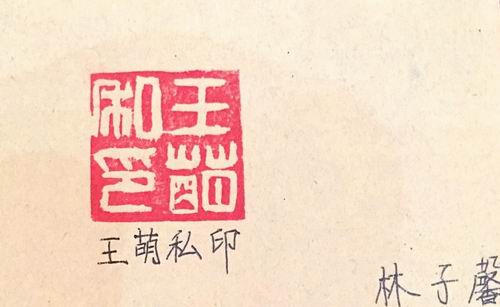 王萌
私印
王萌私印
林子馨